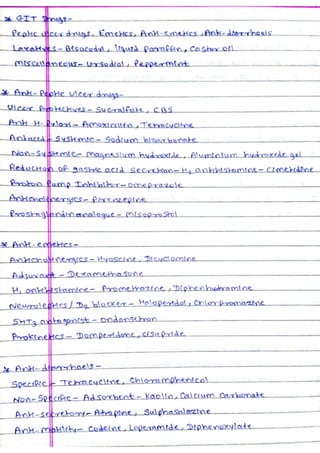 * GIT Drugs-
Peptic ulcer drugs, Emetics, Anti-emetics, Anti-diarrhoels
Laxatives - Bisacodyl, liquid paraffin, Castor oil
Miscellaneous - Ursodiol, Peppermint
* Anti-Peptic ulcer drugs-
Ulcer Protectives - Sucralfate, CBS
Anti H. Pylori - Amoxicillin, Tetracycline
Antacid - Systemic - Sodium bicarbonate
Non-Systemic - Magnesium hydroxide, Aluminium hydroxide gel
Reduction of gastric acid secretion - H₂ antihistamine - Cimetidine
Proton Pump Inhibitor - omeprazole
Anticholinergics - Pirenzepine
Prostaglandin analogue - Misoprostol
* Anti-emetics-
Anticholinergics - Hyoscine, Dicyclomine
Adjuvant - Dexamethasone
H₁ antihistamine - Promethazine, Diphenhydramine
Neuroleptics / D₂ blocker - Haloperidol, Chlorpromazine
5HT₃ antagonist - Ondansetron
Prokinetics - Domperidone, cisapride
* Anti-diarrhoels-
Specific - Tetracycline, Chloramphenicol
Non-Specific - Adsorbent - Kaolin, Calcium Carbonate
Anti-secretory - Atropine, Sulphasalazine
Anti-motility - Codeine, Loperamide, Diphenoxylate